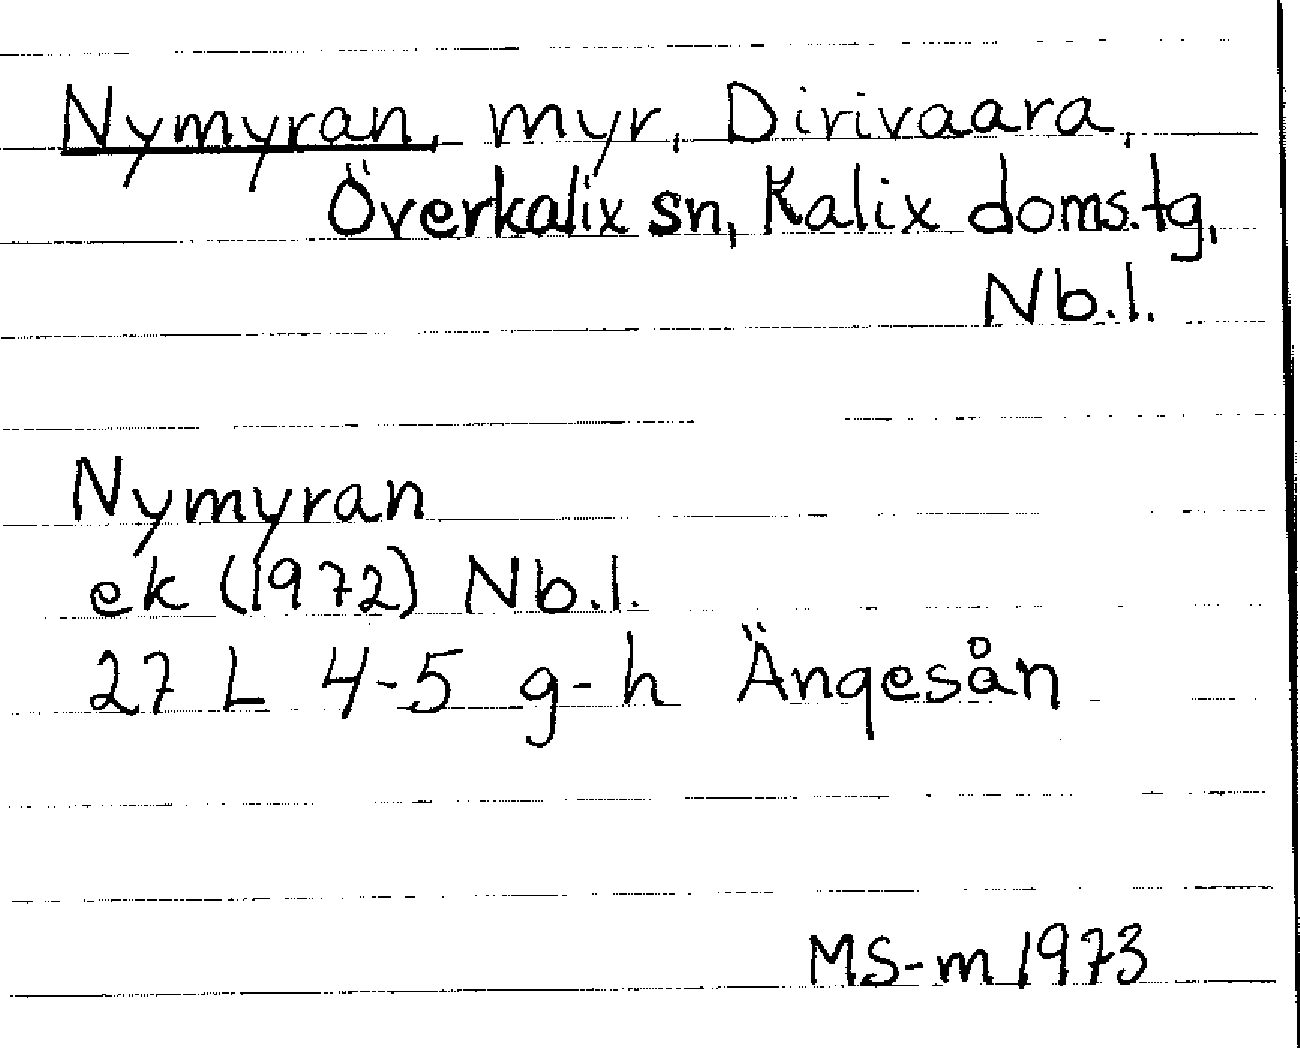 Nymyran, myr, Dirivaara,
Överkalix sn, Kalix doms.tg,
Nb.l.
Nymyran
ek (1972) Nb.l.
27 L 4-5 g-h Ängesån
MS-m 1973